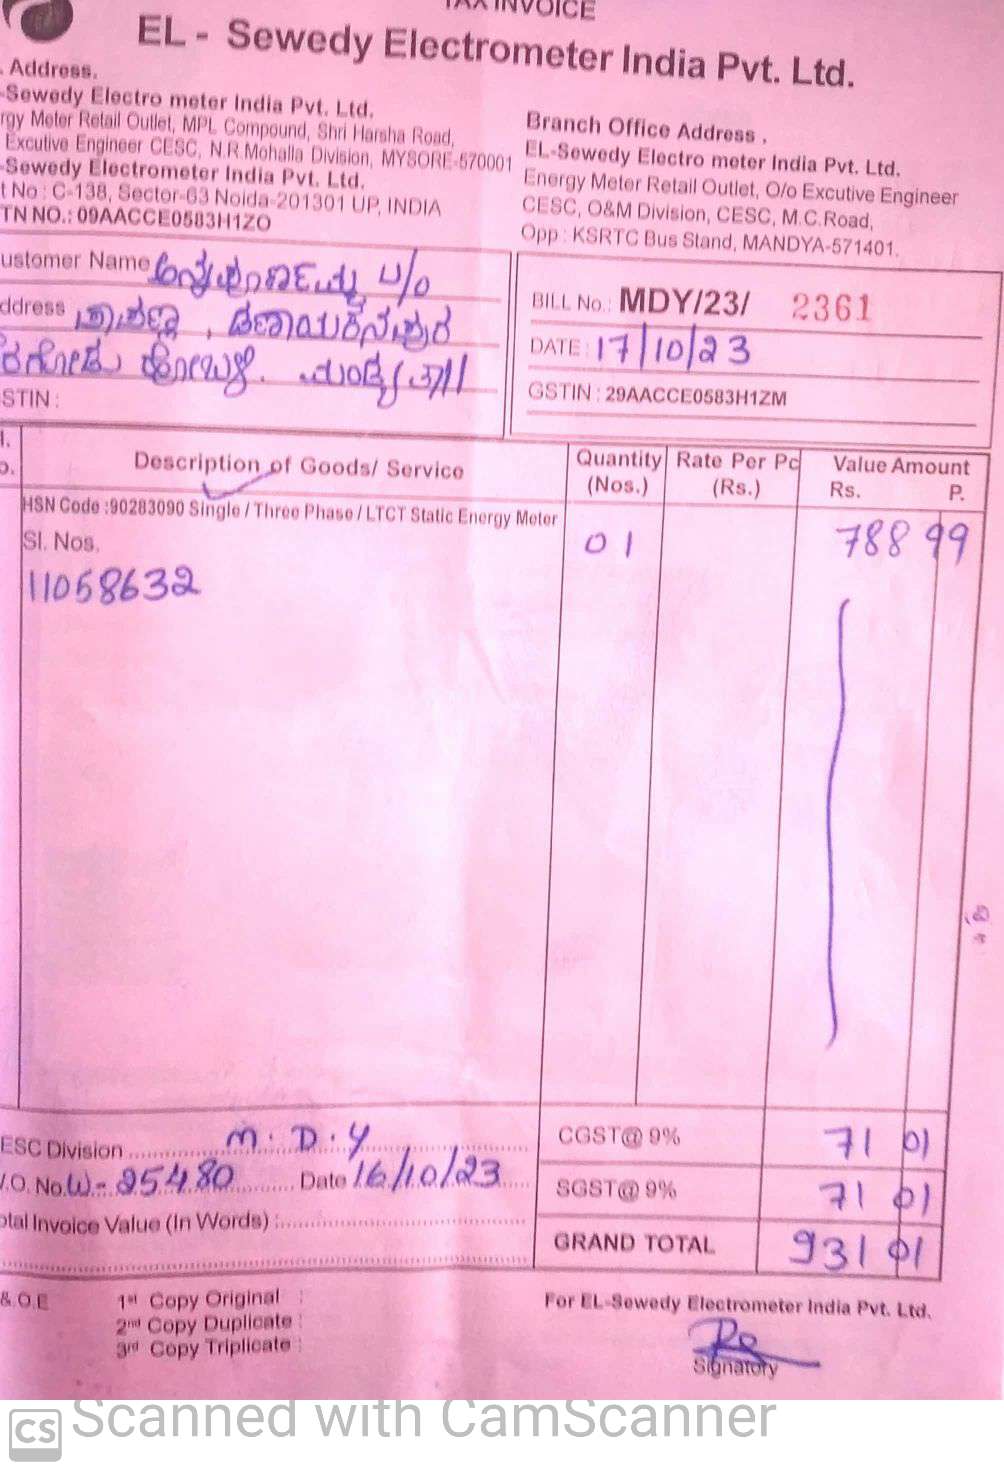 TAX INVOICE
EL - Sewedy Electrometer India Pvt. Ltd.
. Address.
-Sewedy Electro meter India Pvt. Ltd.
rgy Meter Retail Outlet, MPL Compound, Shri Harsha Road,
Excutive Engineer CESC, N.R.Mohalla Division, MYSORE-570001
-Sewedy Electrometer India Pvt. Ltd.
t No : C-138, Sector-63 Noida-201301 UP, INDIA
TN NO.: 09AACCE0583H1ZO
Branch Office Address .
EL-Sewedy Electro meter India Pvt. Ltd.
Energy Meter Retail Outlet, O/o Excutive Engineer
CESC, O&M Division, CESC, M.C.Road,
Opp : KSRTC Bus Stand, MANDYA-571401.
ustomer Name
ddress
STIN :
BILL No.: MDY/23/ 2361
DATE : 17/10/23
GSTIN : 29AACCE0583H1ZM
l.
o.
Description of Goods/ Service
Quantity (Nos.)
Rate Per Pc (Rs.)
Value Amount
Rs. P.
HSN Code :90283090 Single / Three Phase / LTCT Static Energy Meter
Sl. Nos.
01 788 99
11058632
ESC Division M.D.Y
.O. No. W-25480 Date 16/10/23
otal Invoice Value (In Words) :
CGST@ 9% 71 01
SGST@ 9% 71 01
GRAND TOTAL 931 01
&.O.E
1st Copy Original :
2nd Copy Duplicate :
3rd Copy Triplicate :
For EL-Sewedy Electrometer India Pvt. Ltd.
Signatory
CS Scanned with CamScanner